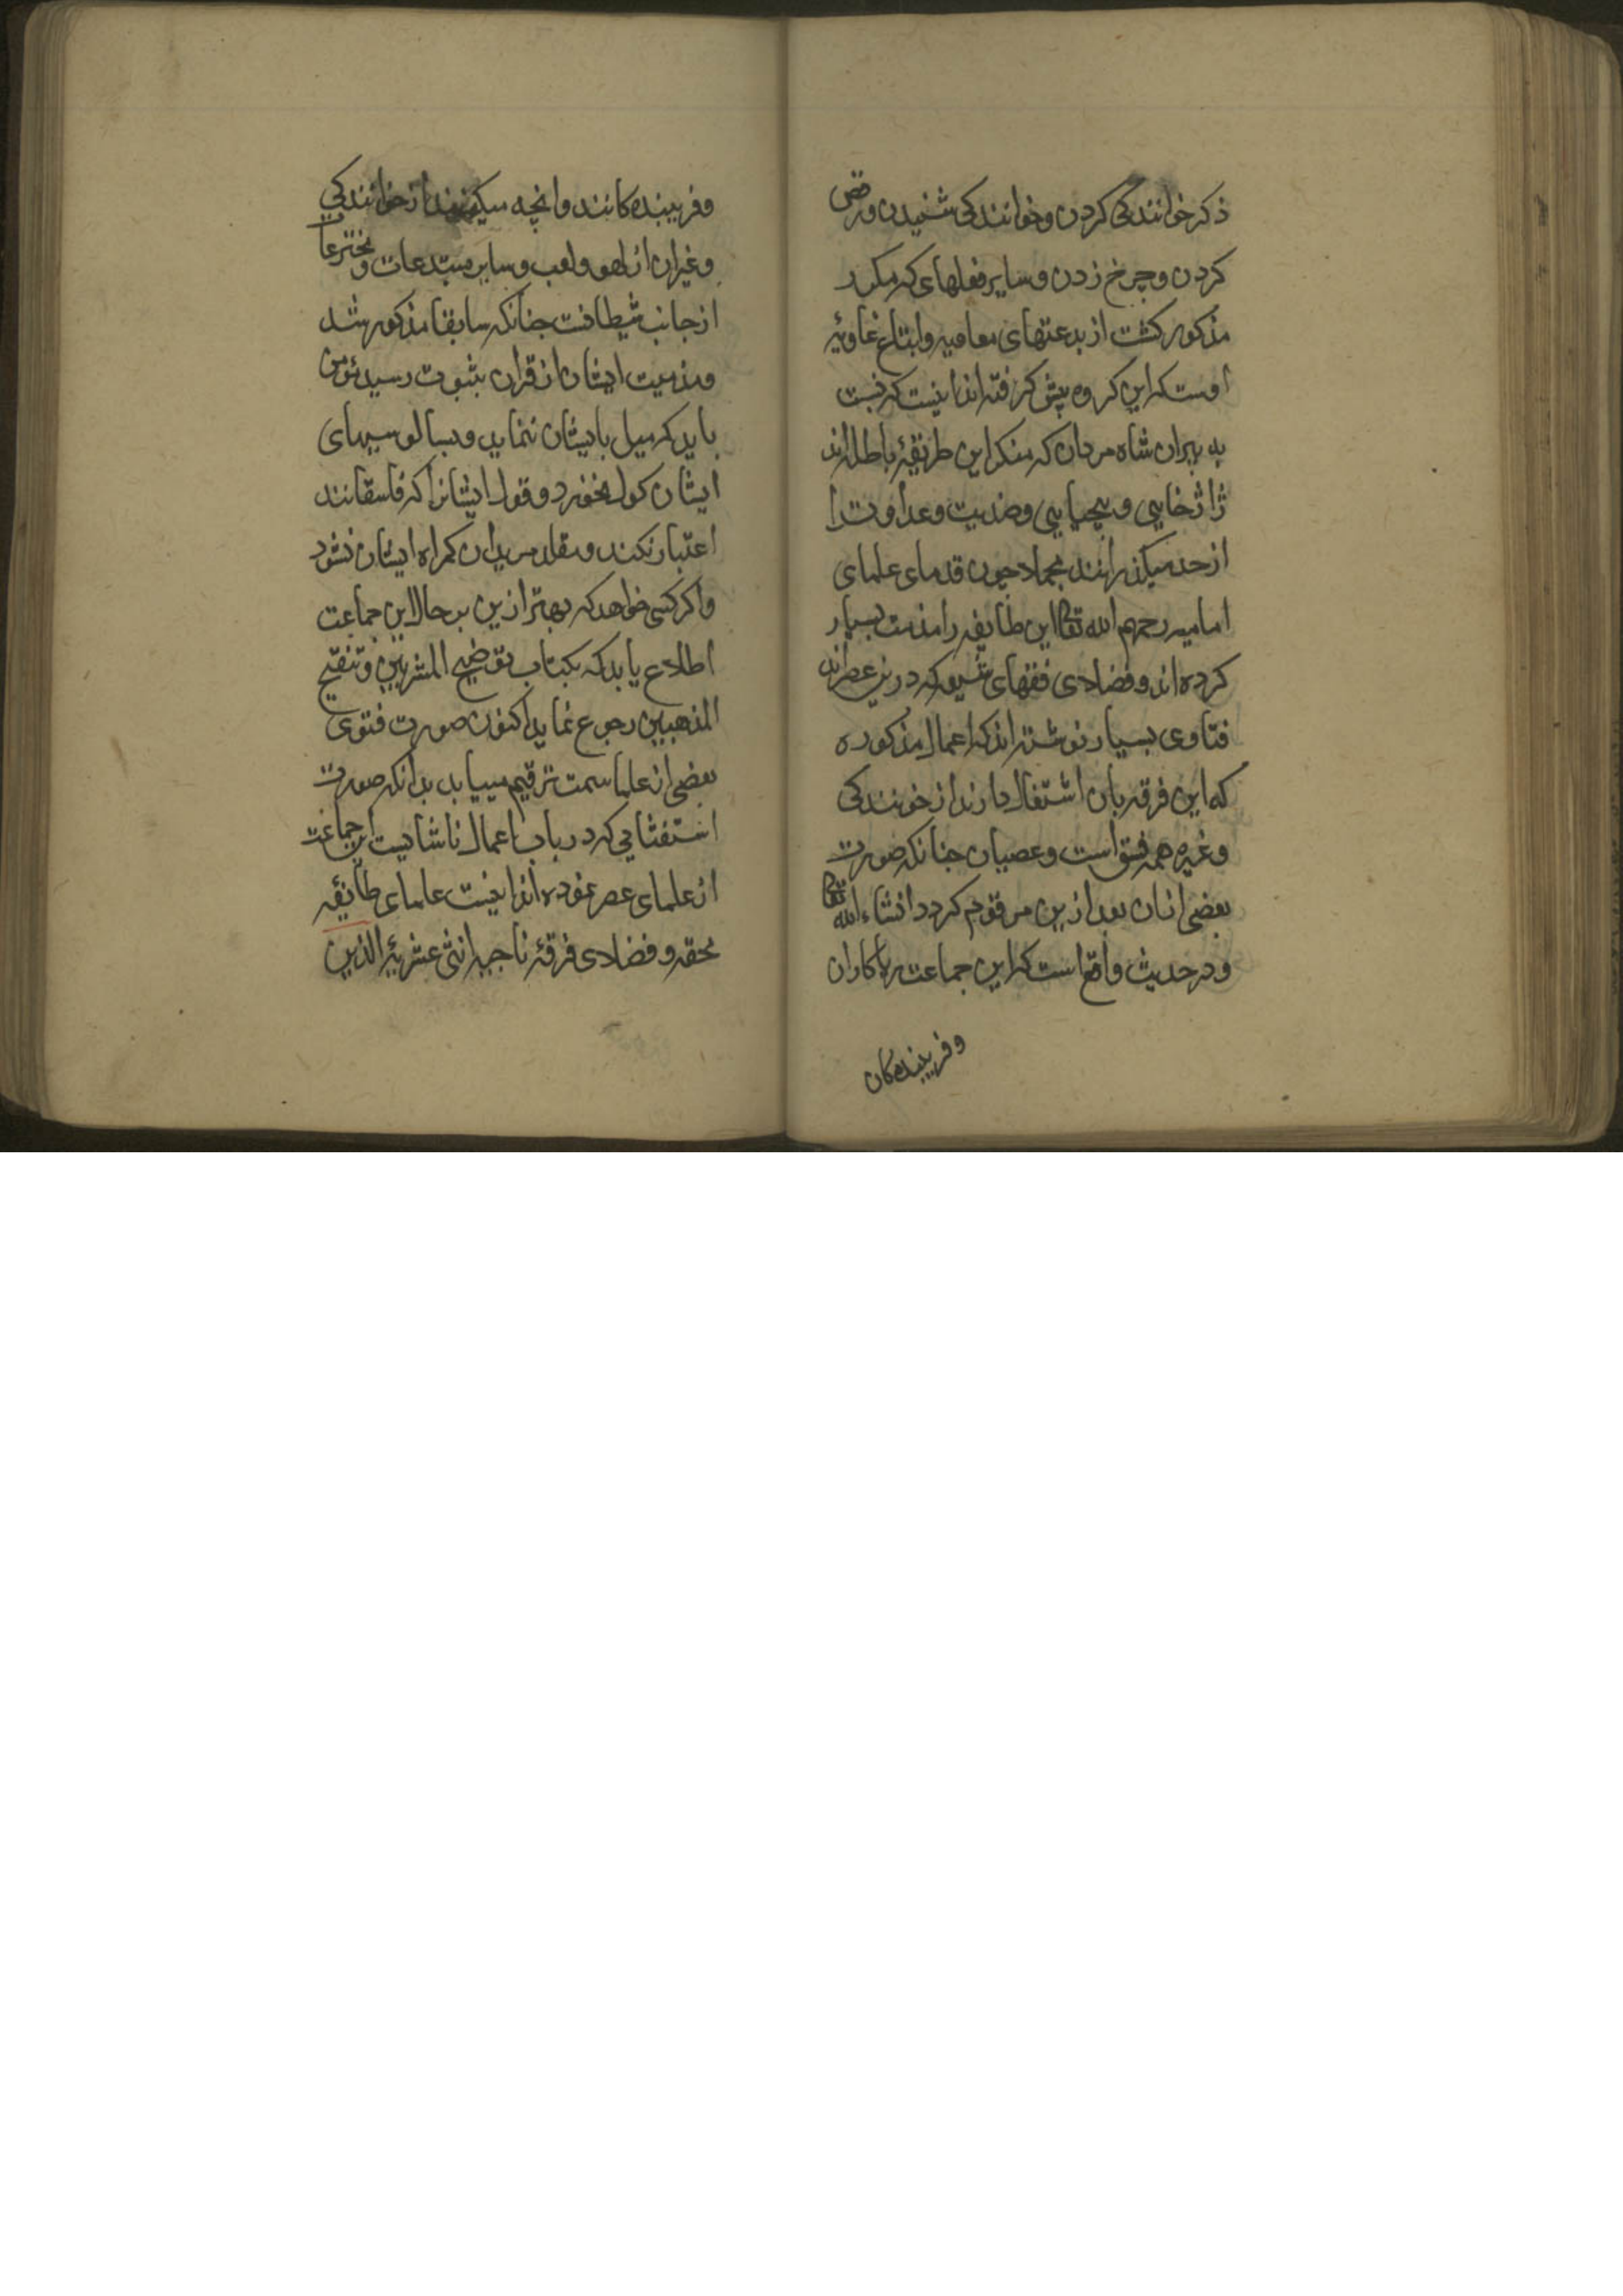 ذکر خوانندکی کردن و خوانندکی شنیدن و رقص
کردن و چرخ زدن و سایر فعلهای که مکرر
مذکور کشت از بدعتهای معاویه و اتباع غاویهٔ
اوست که این کروه پیش کرفته اند اینست که نسبت
به پیران شاه مردان که منکر این طریقهٔ باطل اند
ژاژخایی و بیحیایی و ضدیت و عداوت را
از حد میکذرانند مجملا چون قدمای علمای
امامیه رحمهم الله تعالی این طایفه را مذمت بسیار
کرده اند و فضلای فقهای شیعه که درین عصراند
فتاوی بسیار نوشته اند که اعمال مذکوره
که این فرقه بان اشتغال دارند از خونندکی
و غیره همه فسق است و عصیان جنانکه صورت
بعضی از ان بعد ازین مرقوم کردد انشاء الله تعالی
و در حدیث واقع است که این جماعت ریاکاران
و فریبنده کان
و فریبنده کانند و انچه میکنند از خوانندکی
و غیر ان از لهو و لعب و سایر مبتدعات و مخترعات
از جانب شیطانست جنانکه سابقا مذکور شد
و مذمت ایشان از قران بثبوت رسید مؤمن
باید که میل بایشان ننماید و بسالوسیهای
ایشان کول نخورد و قول ایشانرا که فاسقانند
اعتبار نکند و مقلد مریدان کمراه ایشان نشود
و اکر کسی خواهد که بهتر ازین بر حال این جماعت
اطلاع یابد که بکتاب توضیح المشربین و تنقیح
المذهبین رجوع نماید اکنون صورت فتوی
بعضی از علما سمت ترقیم مییابد بدانکه صورت
استفتایی که در باب اعمال ناشایست این جماعت
از علمای عصر نموده اند اینست علمای طائفه
محقه و فضلای فرقهٔ ناجیه اثنی عشریهٔ الذین